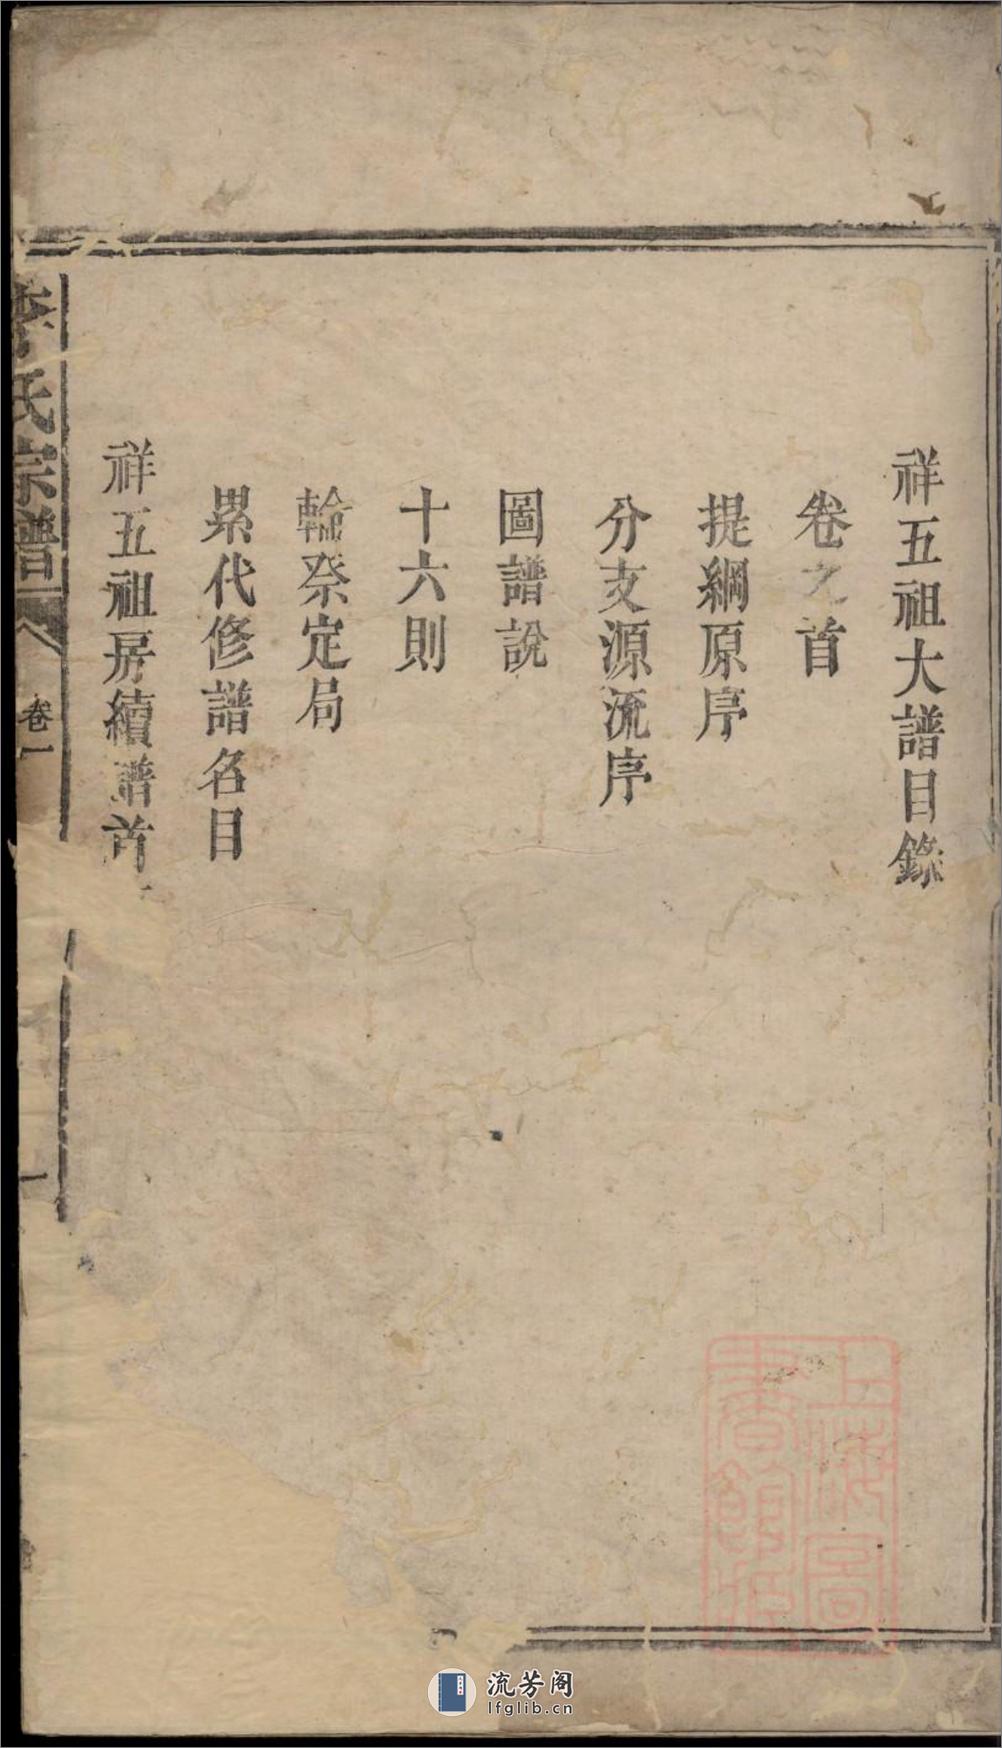 祥五祖大譜目錄
卷之首
提綱原序
分支源流序
圖譜說
十六則
輪祭定局
累代修譜名目
祥五祖房續譜首
李氏宗譜
卷一
一
上海圖
書館藏
流芳阁
lfglib.cn